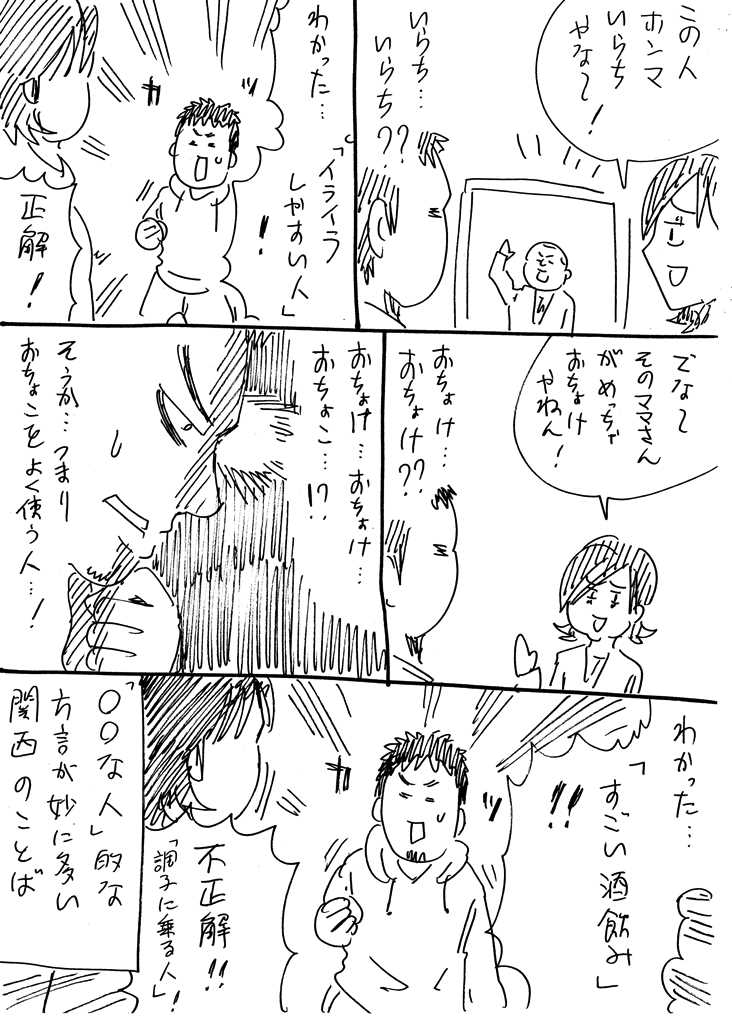 この人
ホンマ
いらち
やな〜！
いらち…
いらち??
わかった…
「イライラ
しやすい人」
！
カ
ッ
正解！
でな〜
そのママさん
がめっちゃ
おちょけ
やねん！
おちょけ…
おちょけ??
おちょけ…おちょけ…
おちょこ…!?
そうか…つまり
おちょこをよく使う人…！
わかった…
「すごい酒飲み」
!!
カ
ッ
不正解!!
「調子に乗る人」！
「〇〇な人」的な
方言が妙に多い
関西のことば